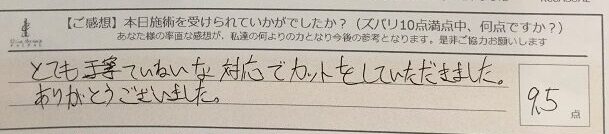 【ご感想】本日施術を受けられていかがでしたか?(ズバリ10点満点中、何点ですか?)
あなた様の率直な感想が、私達の何よりの力となり今後の参考となります。是非ご協力お願いします
とても丁寧ていねいな対応でカットをしていただきました。
ありがとうございました。
9.5点